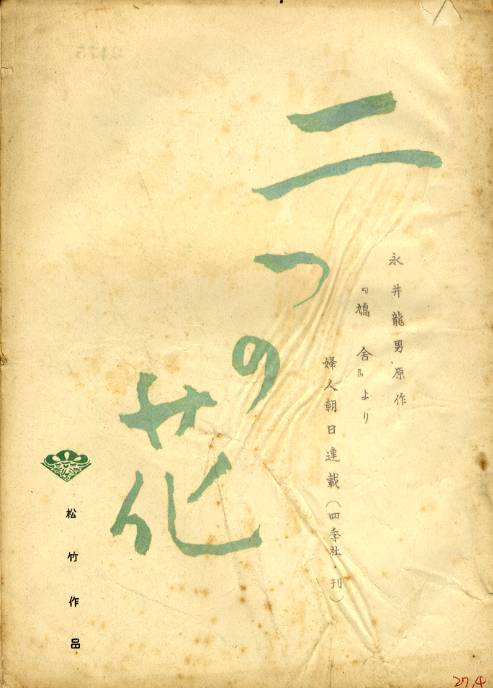 二つの花
永井龍男原作
『鳩舎』より
婦人朝日連載(四季社・刊)
松竹作品
27.4